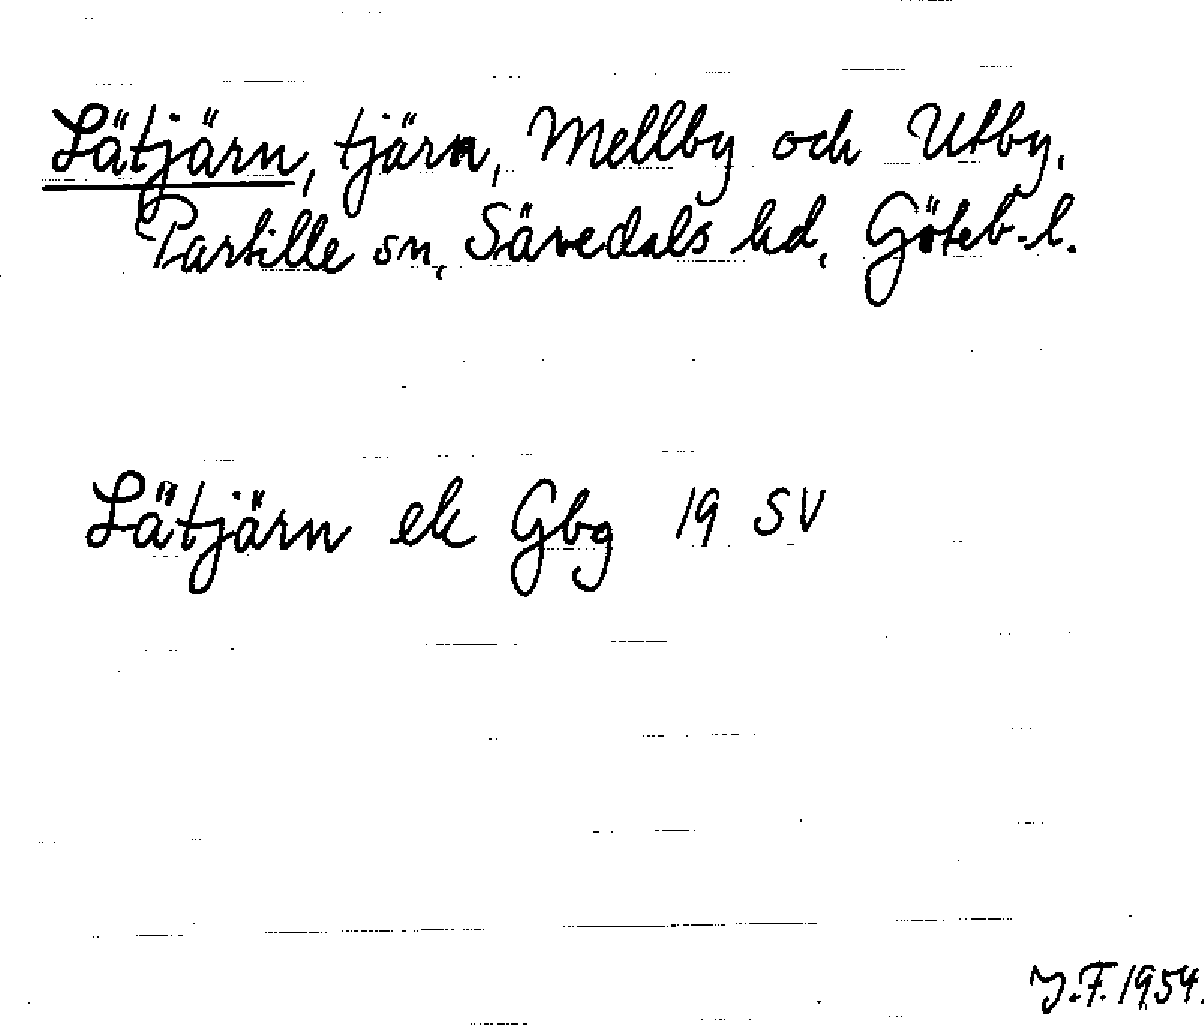 Lätjärn, tjärn, Mellby och Utby,
Partille sn, Sävedals hd, Göteb. l.
Lätjärn ek Gbg 19 SV
J.F. 1954.